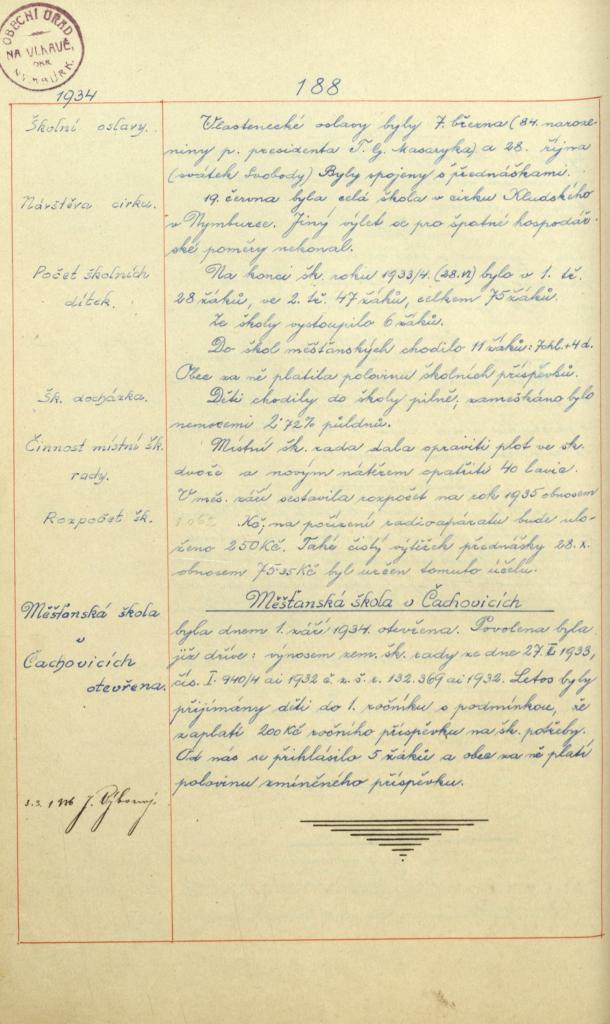 OBECNÍ ÚŘAD
NA VLKAVĚ,
OKR.
1934
188
Školní oslavy.
Vlastenecké oslavy byly 7. března (84. naroze-
niny p. presidenta T. G. Masaryka) a 28. října
(svátek Svobody) Byly spojeny s přednáškami.
Návštěva cirku.
19. června byla celá škola v cirku Kludského
v Nymburce. Jiný výlet se pro špatné hospodář-
ské poměry nekonal.
Počet školních
dítek.
Na konci šk. roku 1933/4. (28. VI) bylo v 1. tř.
28 žáků, ve 2. tř. 47 žáků, celkem 75 žáků.
Ze školy vystoupilo 6 žáků.
Do škol měšťanských chodilo 11 žáků: 7 chl. + 4 d.
Obec za ně platila polovinu školních příspěvků.
Šk. docházka.
Děti chodily do školy pilně; zameškáno bylo
nemocemi 2.72% půldnů.
Činnost místní šk.
rady.
Místní šk. rada dala opraviti plot ve šk.
dvoře a novým nátěrem opatřiti 40 lavic.
V měs. září sestavila rozpočet na rok 1935 obnosem
Rozpočet šk.
Kč; na pořízení radioaparátu bude ulo-
ženo 250 Kč. Také čistý výtěžek přednášky 28. X.
obnosem 75.35 Kč byl určen tomuto účelu.
Měšťanská škola
v
Čachovicích
otevřena.
Měšťanská škola v Čachovicích
byla dnem 1. září 1934 otevřena. Povolena byla
již dříve: výnosem zem. šk. rady ze dne 27. 1933,
čís. I. 940/4 ai 1932 č. z. š. r. 132.369 ai 1932. Letos byly
přijímány děti do 1. ročníku s podmínkou, že
zaplatí 200 Kč ročního příspěvku na šk. potřeby.
Od nás se přihlásilo 5 žáků a obec za ně platí
polovinu zmíněného příspěvku.
J. Výborný